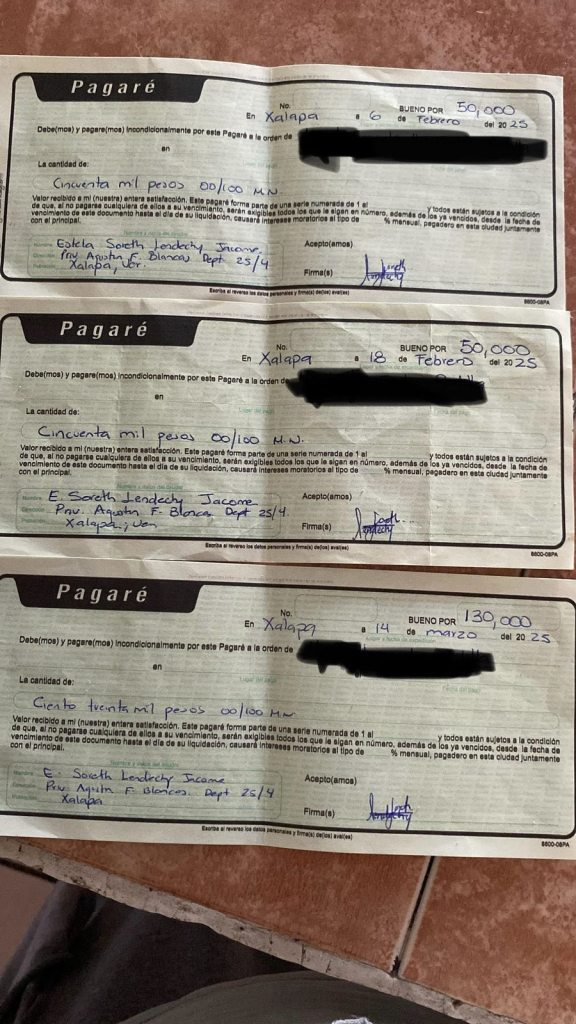 Pagaré
No.
BUENO POR 50,000
En Xalapa a 6 de Febrero del 2025
Debe(mos) y pagare(mos) incondicionalmente por este Pagaré a la orden de
en
La cantidad de:
Cincuenta mil pesos 00/100 M.N.
Valor recibido a mi (nuestra) entera satisfacción. Este pagaré forma parte de una serie numerada de 1 al y todos están sujetos a la condición
de que, al no pagarse cualquiera de ellos a su vencimiento, serán exigibles todos los que le sigan en número, además de los ya vencidos, desde la fecha de
vencimiento de este documento hasta el día de su liquidación, causará intereses moratorios al tipo de % mensual, pagadero en esta ciudad juntamente
con el principal.
Nombre y datos del deudor
Nombre Estela Soreth Lendechy Jacome. Acepto(amos)
Dirección Priv. Agustin F. Blancas Dept 25/4
Población Xalapa, Ver. Firma(s)
Escriba al reverso los datos personales y firma(s) de(los) aval(es)
8600-08PA
Pagaré
No.
BUENO POR 50,000
En Xalapa a 18 de Febrero del 2025
Debe(mos) y pagare(mos) incondicionalmente por este Pagaré a la orden de
en
La cantidad de:
Cincuenta mil pesos 00/100 M.N.
Valor recibido a mi (nuestra) entera satisfacción. Este pagaré forma parte de una serie numerada de 1 al y todos están sujetos a la condición
de que, al no pagarse cualquiera de ellos a su vencimiento, serán exigibles todos los que le sigan en número, además de los ya vencidos, desde la fecha de
vencimiento de este documento hasta el día de su liquidación, causará intereses moratorios al tipo de % mensual, pagadero en esta ciudad juntamente
con el principal.
Nombre y datos del deudor
Nombre E. Soreth Lendechy Jacome Acepto(amos)
Dirección Priv. Agustin F. Blancas Dept 25/4.
Población Xalapa, Ver Firma(s)
Escriba al reverso los datos personales y firma(s) de(los) aval(es)
8600-08PA
Pagaré
No.
BUENO POR 130,000
En Xalapa a 14 de marzo del 2025
Debe(mos) y pagare(mos) incondicionalmente por este Pagaré a la orden de
en
La cantidad de:
Ciento treinta mil pesos 00/100 M.N
Valor recibido a mi (nuestra) entera satisfacción. Este pagaré forma parte de una serie numerada de 1 al y todos están sujetos a la condición
de que, al no pagarse cualquiera de ellos a su vencimiento, serán exigibles todos los que le sigan en número, además de los ya vencidos, desde la fecha de
vencimiento de este documento hasta el día de su liquidación, causará intereses moratorios al tipo de % mensual, pagadero en esta ciudad juntamente
con el principal.
Nombre y datos del deudor
Nombre E. Soreth Lendechy Jacome Acepto(amos)
Dirección Priv. Agustin F. Blancas Dept 25/4
Población Xalapa Firma(s)
Escriba al reverso los datos personales y firma(s) de(los) aval(es)
8600-08PA